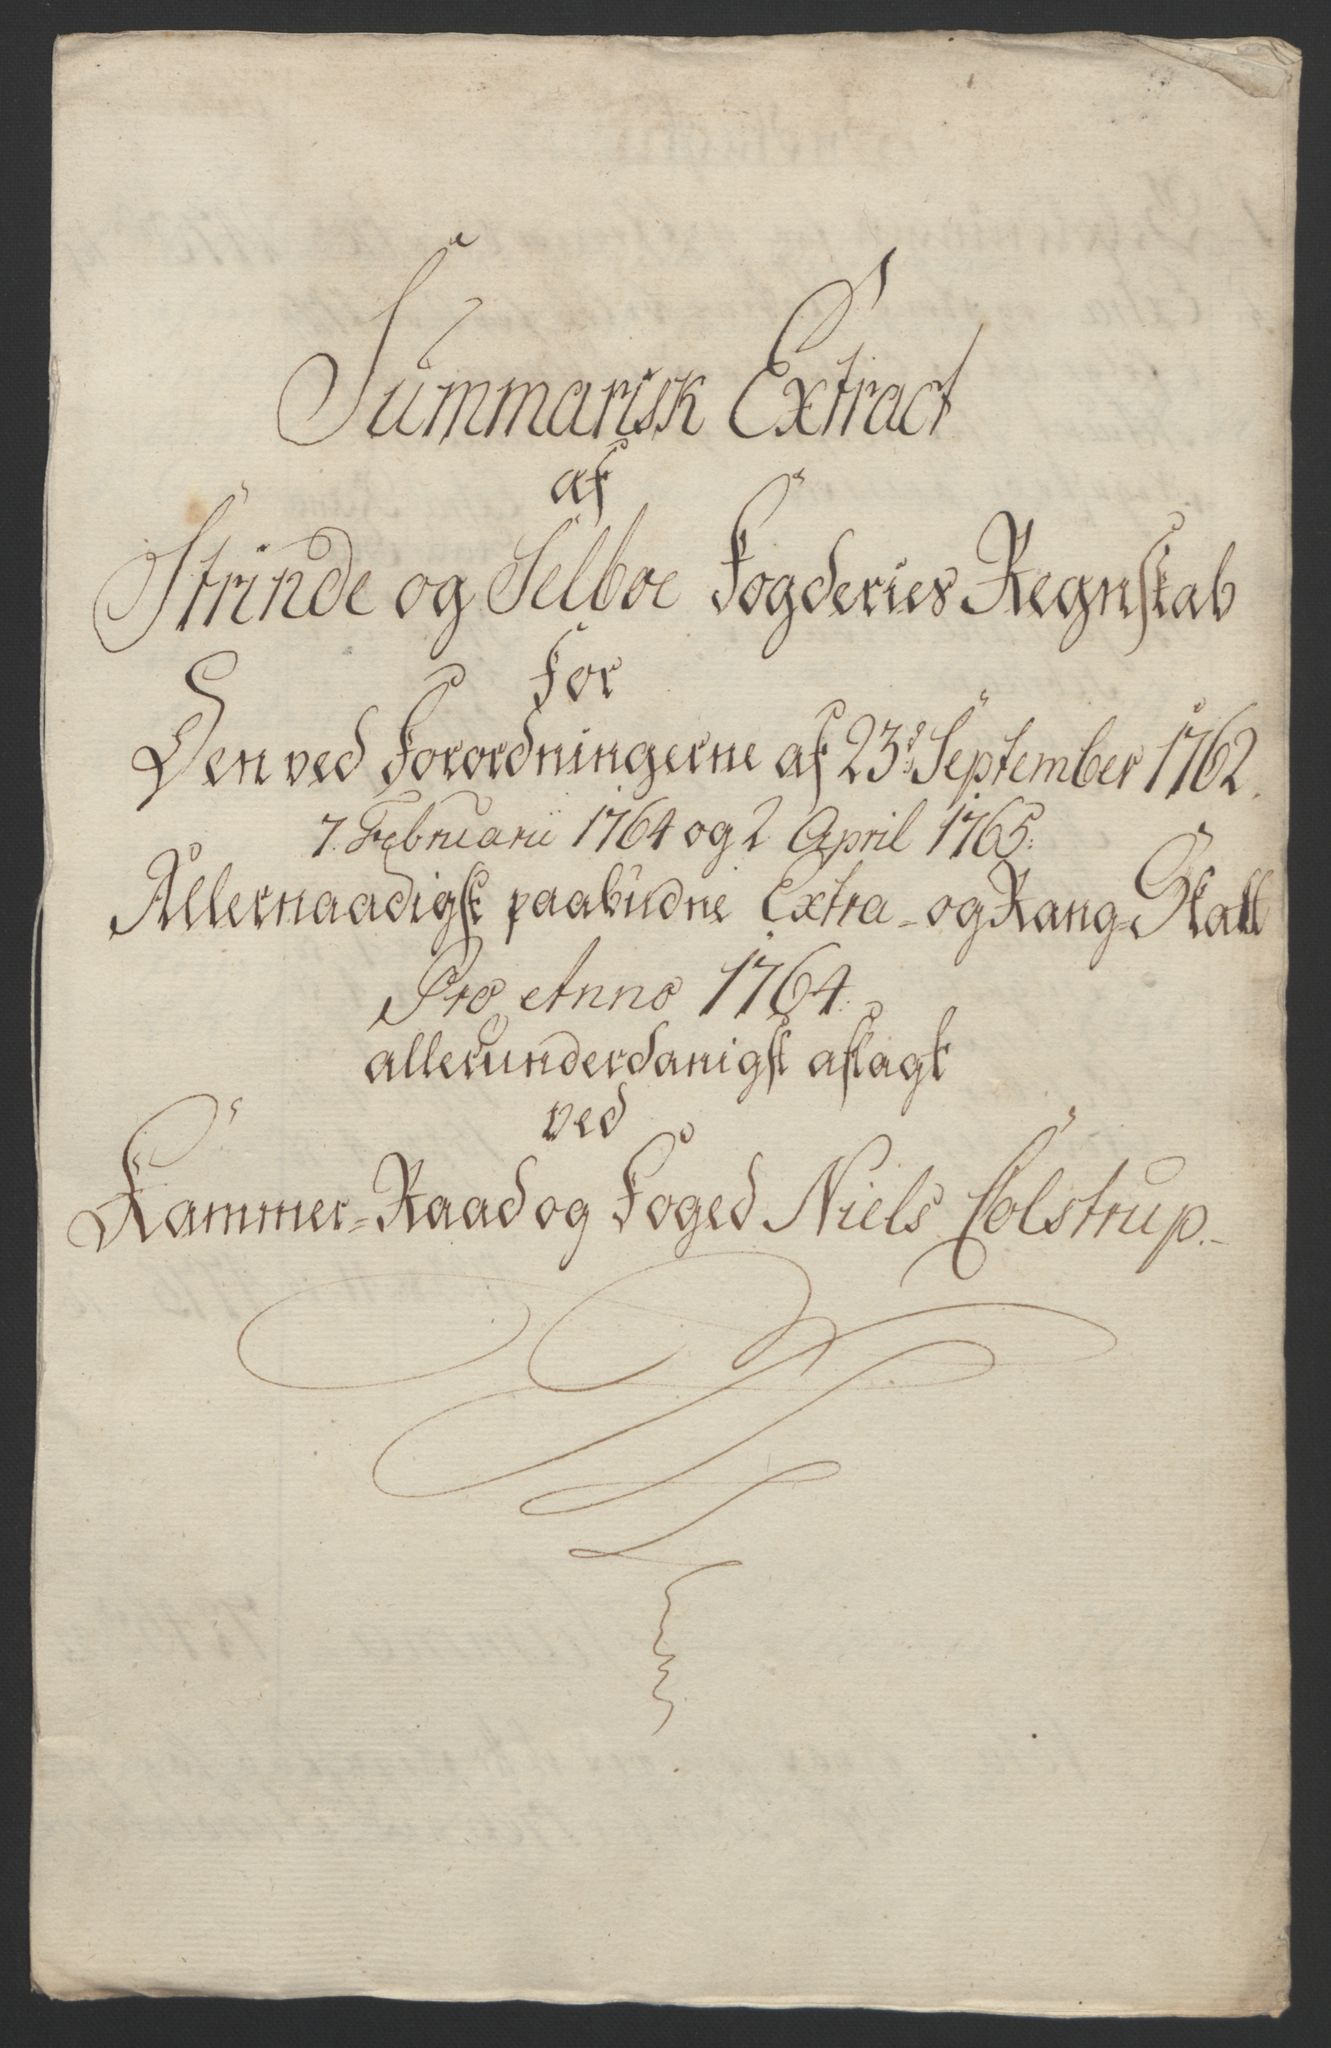 Summarisk Extract
af
Strinde og Selboe Fogderies Regnskab
for
Den ved Forordningerne af 23de September 1762.
7. Februarii 1764 og 2 April 1765.
Allernaadigst paabudne Extra- og Rang-Skatt
Pro Anno 1764.
allerunderdanigst aflagt
ved
Kammer-Raad og Foged Niels Colstrup.